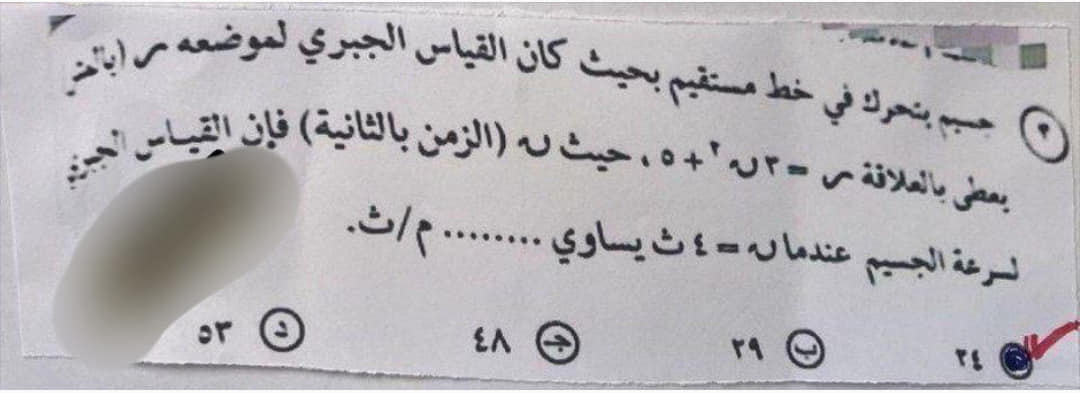 ٣ جسيم يتحرك في خط مستقيم بحيث كان القياس الجبري لموضعه س (بالمتر
يعطى بالعلاقة س = ٣ ن٢ + ٥ ، حيث ن (الزمن بالثانية) فإن القياس الجبري
لسرعة الجسيم عندما ن = ٤ ث يساوي ........ م/ث.
٢٤ ب ٢٩ ج ٤٨ د ٥٣